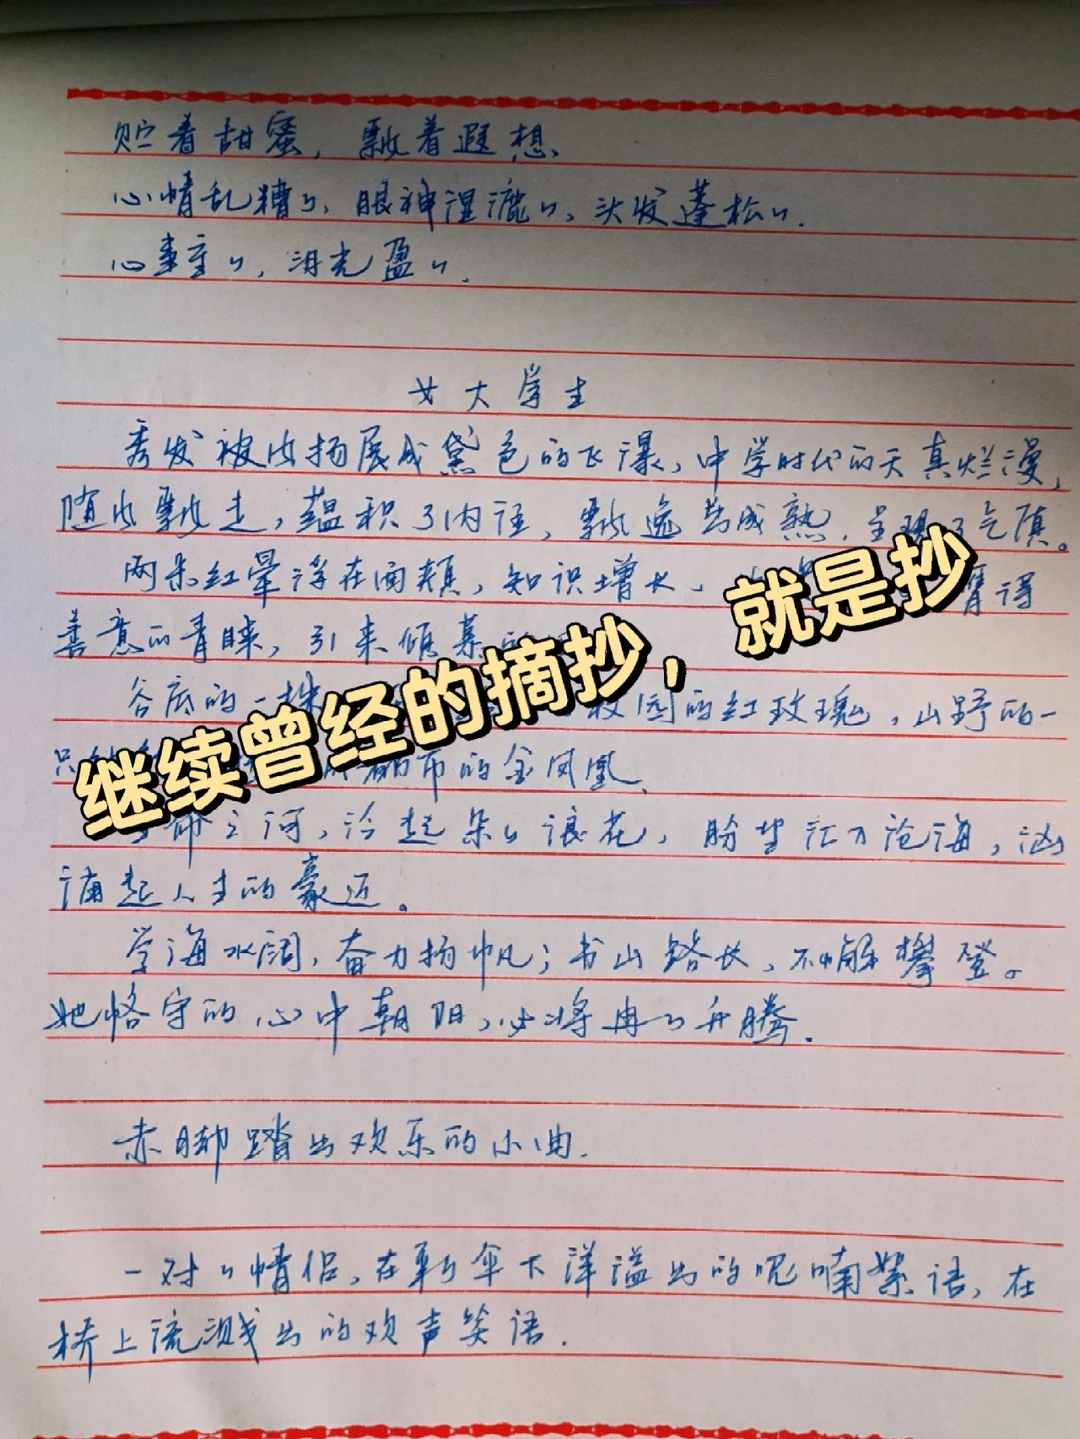 贮着甜蜜，飘着遐想、
心情乱糟〃、眼神湿漉〃、头发蓬松〃.
心事重〃，泪光盈〃.
女大学生
秀发被次扬展成黛色的飞瀑、中学时代的天真烂漫，
随次飘走，蕴积了内涵、飘逸与成熟，呈现了气质。
两朵红晕浮在面颊，知识增长、得
善意的青睐，引来倾慕的
谷底的一株校园的红玫瑰，山野的一
只都市的金凤凰、
之河，泛起朵〃浪花，盼望汇为沧海，汹
涌起人生的豪迈。
学海水阔，奋力扬帆；书山路长，不懈攀登。
她恪守的心中朝阳，必将冉〃升腾.
赤脚踏出欢乐的小曲.
一对〃情侣、在新伞下洋溢出的呢喃絮语、在
桥上流溅出的欢声笑语.
继续曾经的摘抄，就是抄